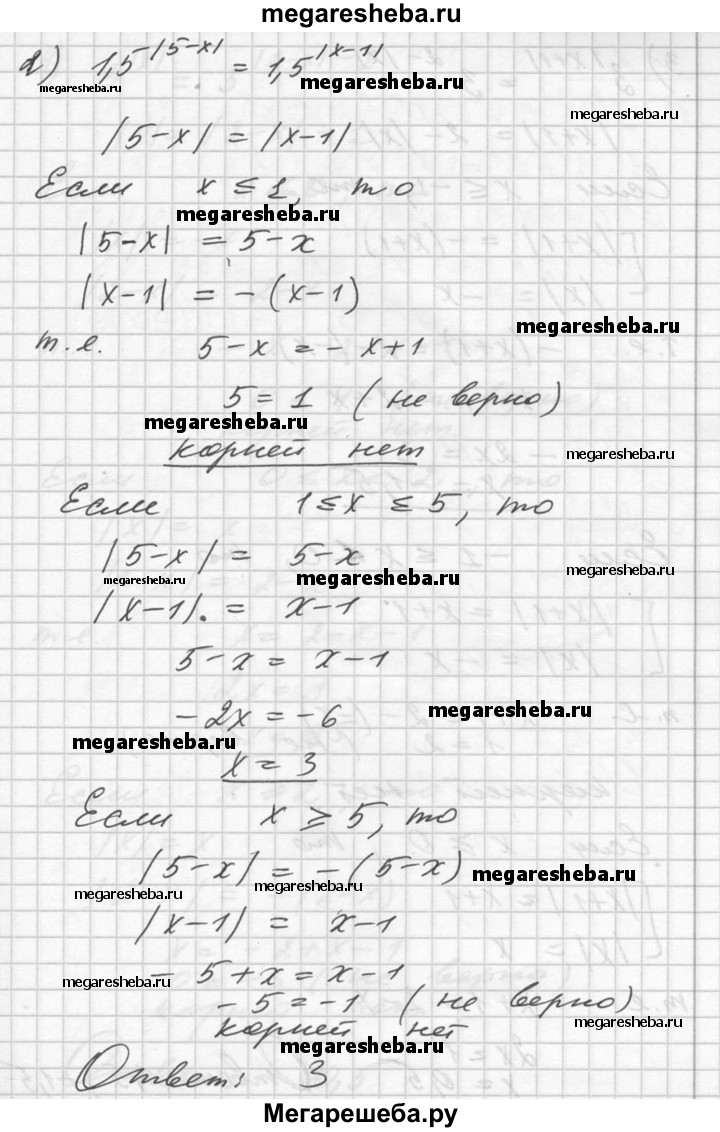 megaresheba.ru
2) 1,5^|5-x| = 1,5^|x-1|
megaresheba.ru
megaresheba.ru
megaresheba.ru
|5-x| = |x-1|
Если x ≤ 1, то
megaresheba.ru
|5-x| = 5-x
|x-1| = -(x-1)
megaresheba.ru
т.е. 5-x = -x+1
5 = 1 (не верно)
megaresheba.ru
корней нет
megaresheba.ru
Если 1 ≤ x ≤ 5, то
|5-x| = 5-x
megaresheba.ru
megaresheba.ru
megaresheba.ru
|x-1| = x-1
5-x = x-1
-2x = -6
megaresheba.ru
megaresheba.ru
x = 3
Если x ≥ 5, то
|5-x| = -(5-x)
megaresheba.ru
megaresheba.ru
megaresheba.ru
|x-1| = x-1
-5+x = x-1
megaresheba.ru
-5 = -1 (не верно)
megaresheba.ru
корней нет
megaresheba.ru
Ответ: 3
Мегарешеба.ру